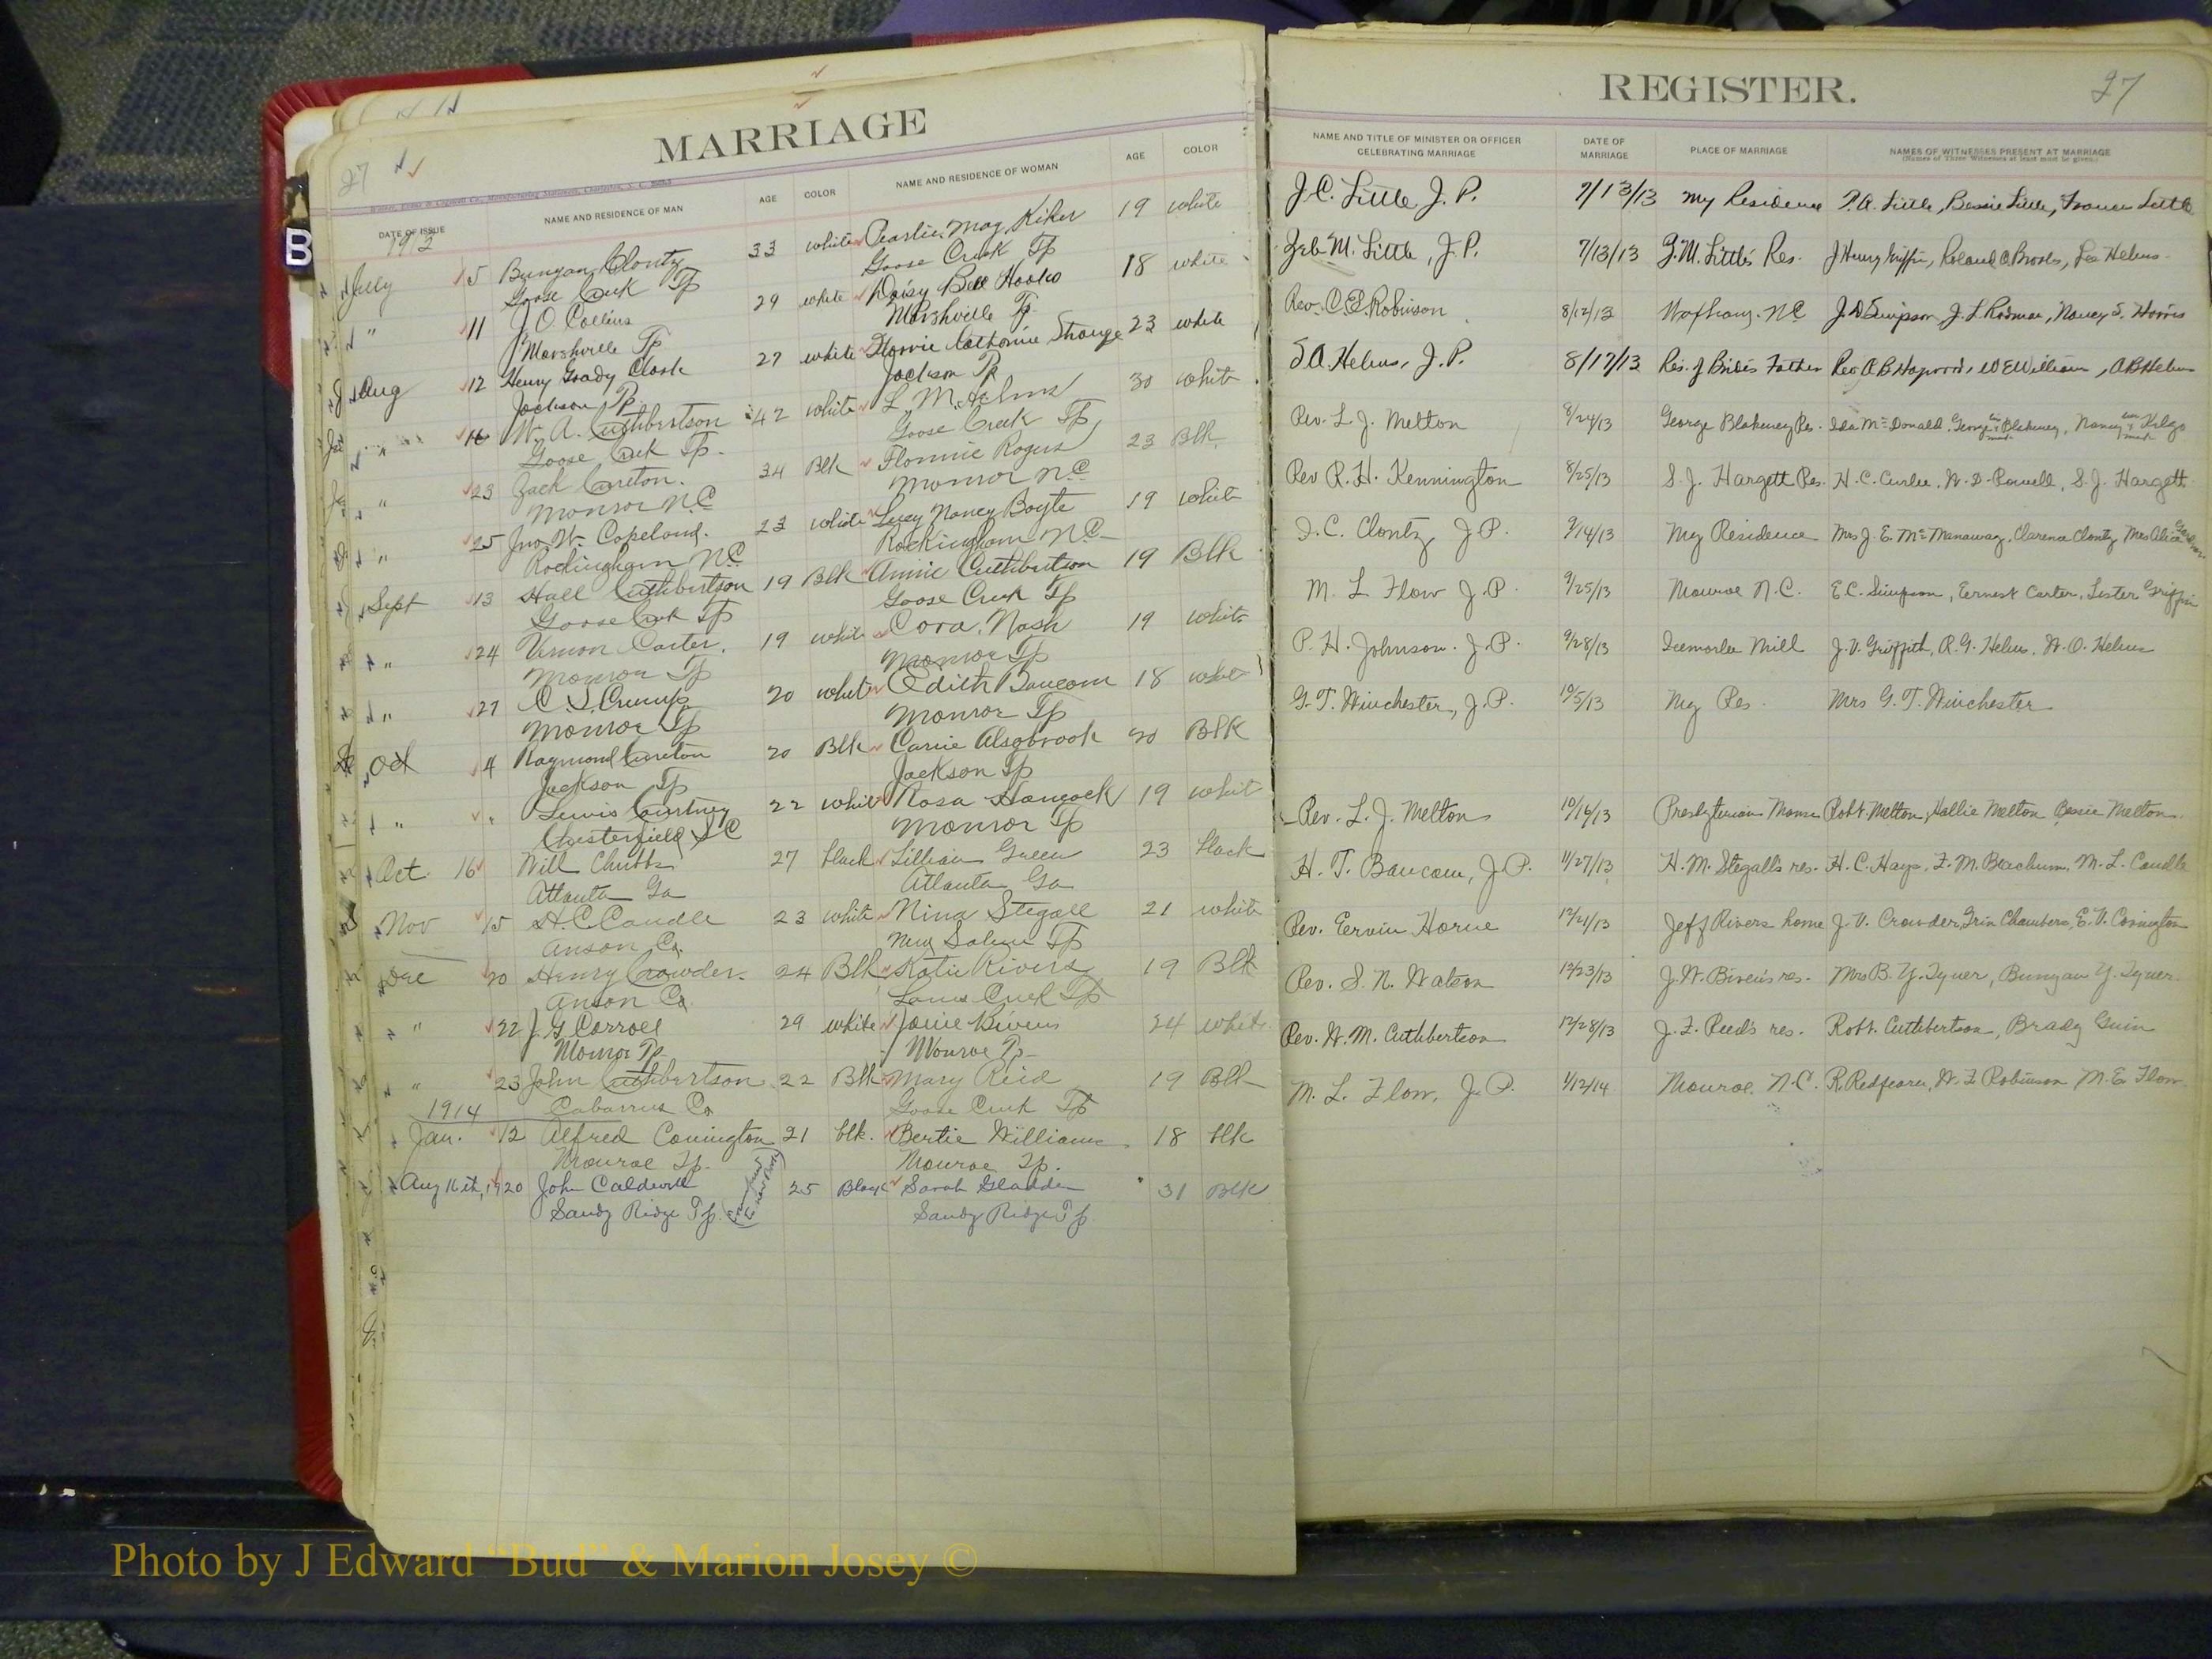 MARRIAGE
27
DATE OF ISSUE NAME AND RESIDENCE OF MAN AGE COLOR NAME AND RESIDENCE OF WOMAN AGE COLOR
1913
July 5 Bunyan Clontz 33 white Pearlie May Kiker 19 white
Goose Creek Tp Goose Creek Tp
" 11 J. O. Collins 29 white Daisy Bell Hooks 18 white
Marshville Tp Marshville Tp
Aug 12 Henry Grady Clark 27 white Catherine 23 white
Jackson Tp Jackson Tp
" 16 W. A. Cuthbertson 42 white L. M. Helms 30 white
Goose Creek Tp. Goose Creek Tp
" 23 Zach Cureton. 34 Blk Rogers 23 Blk.
Monroe N.C Monroe N.C.
" 25 Jno. W. Copeland. 23 white Lucy Nancy Boyte 19 white
Rockingham N.C. Rockingham N.C.
Sept 13 Hall Cuthbertson 19 Blk Annie Cuthbertson 19 Blk
Goose Creek Tp Goose Creek Tp
" 24 Vernon Carter. 19 white Cora Nash 19 white
Monroe Tp Monroe Tp
" 27 C. S. Crump 20 white Edith Baucom 18 white
Monroe Tp Monroe Tp
Oct 4 Raymond Cureton 20 Blk Carrie Alsobrook 20 Blk
Jackson Tp Jackson Tp
" " Lewis Courtney 22 white Rosa Hancock 19 white
Chesterfield S C Monroe Tp
Oct. 16 Will Chubbs 27 black Lillian Green 23 black
Atlanta Ga Atlanta Ga
Nov 15 H. C. Caudle 23 white Nina Stegall 21 white
Anson Co. New Salem Tp
Dec 20 Henry Crowder. 24 Blk Katie Rivers 19 Blk
Anson Co. Lanes Creek Tp
" 22 J. G. Carroll 29 white Josie Bivens 24 white
Monroe Tp Monroe Tp
" 23 John Cuthbertson 22 Blk Mary Reid 19 Blk
1914 Cabarrus Co Goose Creek Tp
Jan. 12 Alfred Covington 21 blk. Bertie Williams 18 blk
Monroe Tp. Monroe Tp.
Aug 16th, 1920 John Caldwell 25 Black Sarah Gladden 31 Blk
Sandy Ridge Tp. Sandy Ridge Tp.
REGISTER.
27
NAME AND TITLE OF MINISTER OR OFFICER CELEBRATING MARRIAGE DATE OF MARRIAGE PLACE OF MARRIAGE NAMES OF WITNESSES PRESENT AT MARRIAGE
(Names of Three Witnesses at least must be given.)
J. C. Little J. P. 7/13/13 My Residence Little, Bessie Little, Little
Zeb. M. Little, J. P. 7/13/13 Z. M. Little's Res. J Henry Griffin, Roland Brooks, Lee Helms
Rev. C. E. Robinson 8/12/13 Waxhaw, N.C. J. D Simpson, Nancy S. Harris
S. A. Helms, J. P. 8/17/13 Res. of Bride's Father Rev. A. B Haywood, W E Williams, A B Helms
Rev. L. J. Melton 8/24/13 George Blakeney Res. Ida McDonald, George Blakeney, Nancy Kelgo
Rev R. H. Kennington 8/25/13 S. J. Hargett Res. H. C. Curlee, W. D. Powell, S. J. Hargett
I. C. Clontz, J. P. 9/14/13 My Residence Mrs J. E. McManaway, Clarence Clontz, Mrs Alice
M. L Flow J. P. 9/25/13 Monroe N.C. E. C. Simpson, Earnest Carter, Lester Griffin
P. H. Johnson. J. P. 9/28/13 Icemorlee Mill J. V. Griffith, R. G. Helms, W. O. Helms
G. T. Winchester, J. P. 10/5/13 My Res. Mrs G. T. Winchester
Rev. L. J. Melton 10/16/13 Presbyterian Manse Robt. Melton, Hallie Melton, Bessie Melton.
H. T. Baucom, J. P. 11/27/13 H. M. Stegall's res. H. C. Hays, F. M. Beachum, M. L. Caudle
Rev. Ervin Horne 12/21/13 Jeff Rivers home J. V. Crowder, Chambers, E. V. Covington
Rev. S. N. Watson 12/23/13 J. W. Biven's res. Mrs B. Y. Tyner, Bunyan Y. Tyner.
Rev. W. M. Cuthbertson 12/28/13 J. F. Reed's res. Robt. Cuthbertson, Brady Guin
M. L. Flow, J. P. 1/12/14 Monroe, N.C. R. Redfearn, W. F. Robinson M. E. Flow
B
Photo by J Edward “Bud” & Marion Josey ©